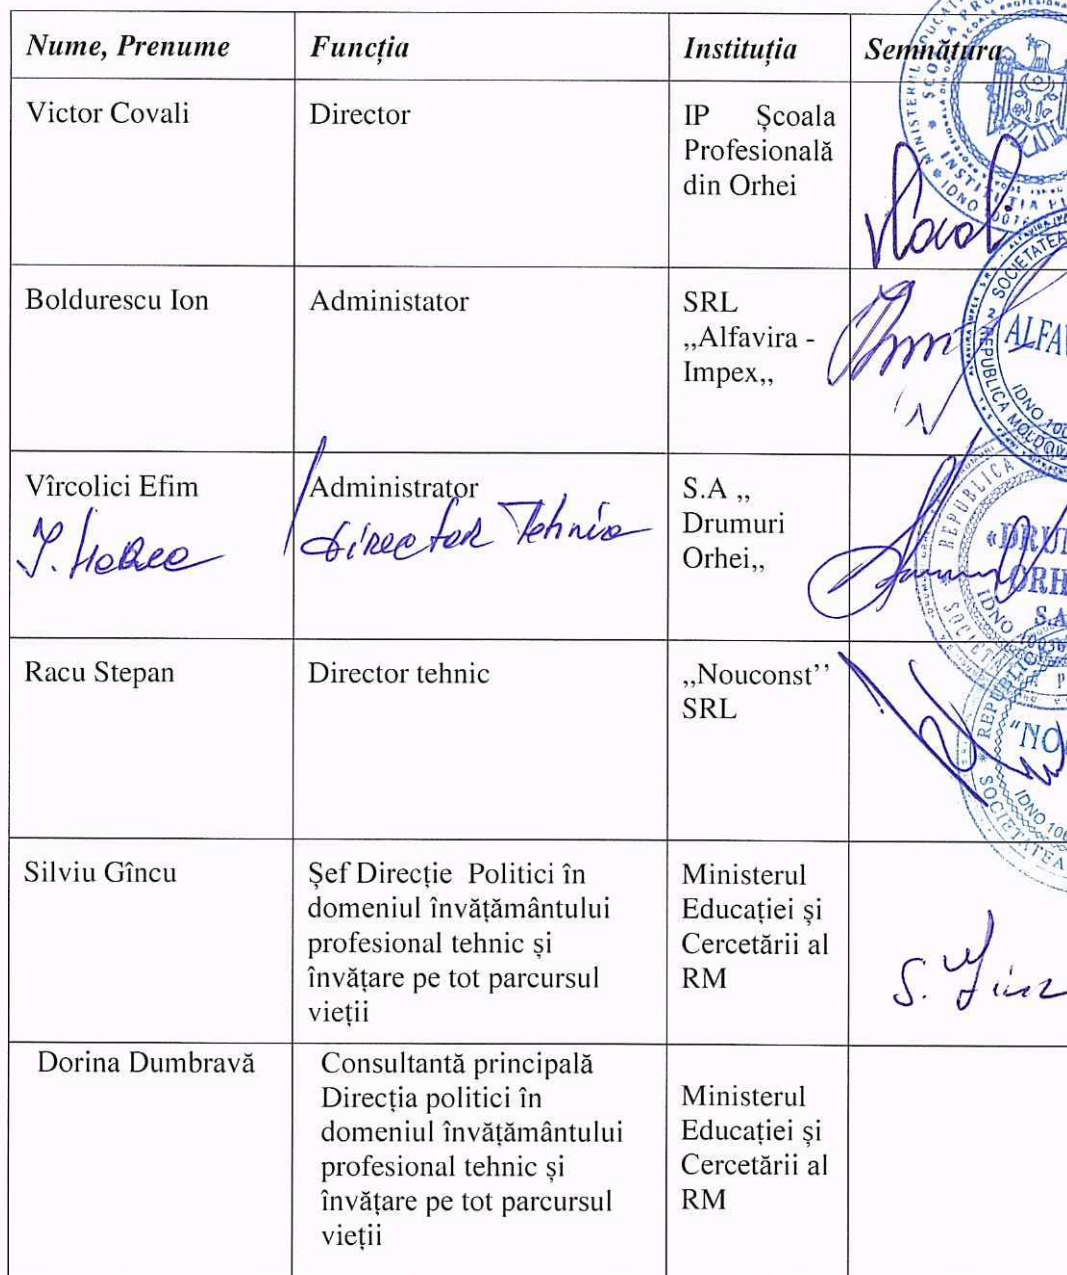 Nume, Prenume Funcția Instituția Semnătura
Victor Covali Director IP Școala
Profesională
din Orhei
Boldurescu Ion Administator SRL
,,Alfavira -
Impex,,
ALFAV
REPUBLICA MOLDOVA
Vîrcolici Efim Administrator S.A ,,
Drumuri
Orhei,,
Director Tehnic
«DRU
ORH
S.A
Racu Stepan Director tehnic ,,Nouconst’’
SRL
"NO
Silviu Gîncu Șef Direcție Politici în
domeniul învățământului
profesional tehnic și
învățare pe tot parcursul
vieții
Ministerul
Educației și
Cercetării al
RM
Dorina Dumbravă Consultantă principală
Direcția politici în
domeniul învățământului
profesional tehnic și
învățare pe tot parcursul
vieții
Ministerul
Educației și
Cercetării al
RM